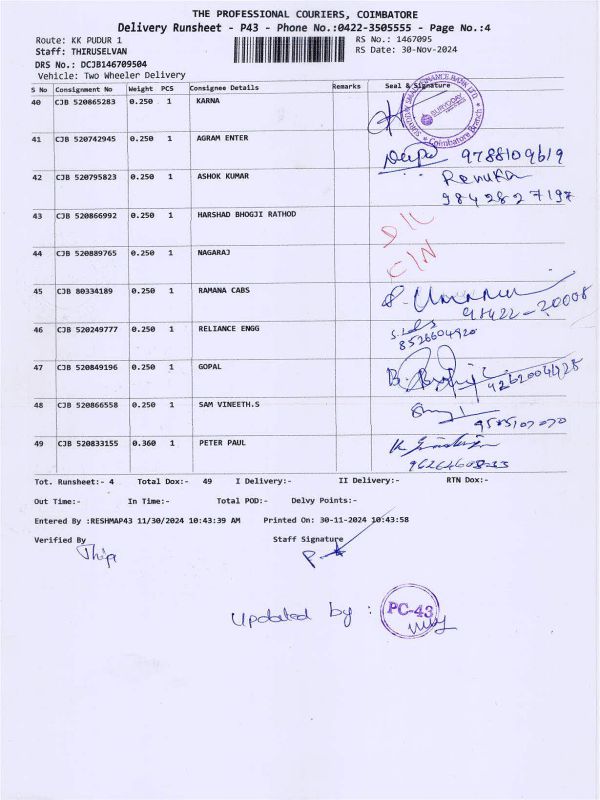 THE PROFESSIONAL COURIERS, COIMBATORE
Delivery Runsheet - P43 - Phone No.:0422-3505555 - Page No.:4
Route: KK PUDUR 1 RS No.: 1467095
Staff: THIRUSELVAN RS Date: 30-Nov-2024
DRS No.: DCJB146709504
Vehicle: Two Wheeler Delivery
S No Consignment No Weight PCS Consignee Details Remarks Seal & Signature
40 CJB 520865283 0.250 1 KARNA
Coimbatore Branch
41 CJB 520742945 0.250 1 AGRAM ENTER
Deepa 9788109619
42 CJB 520795823 0.250 1 ASHOK KUMAR Renuka
9842827197
43 CJB 520866992 0.250 1 HARSHAD BHOGJI RATHOD D/L
44 CJB 520889765 0.250 1 NAGARAJ C/N
45 CJB 80334189 0.250 1 RAMANA CABS
98422-20008
46 CJB 520249777 0.250 1 RELIANCE ENGG
8526604920
47 CJB 520849196 0.250 1 GOPAL
48 CJB 520866558 0.250 1 SAM VINEETH.S
49 CJB 520833155 0.360 1 PETER PAUL
Tot. Runsheet:- 4 Total Dox:- 49 I Delivery:- II Delivery:- RTN Dox:-
Out Time:- In Time:- Total POD:- Delvy Points:-
Entered By :RESHMAP43 11/30/2024 10:43:39 AM Printed On: 30-11-2024 10:43:58
Verified By Staff Signature
Updated by : PC-43